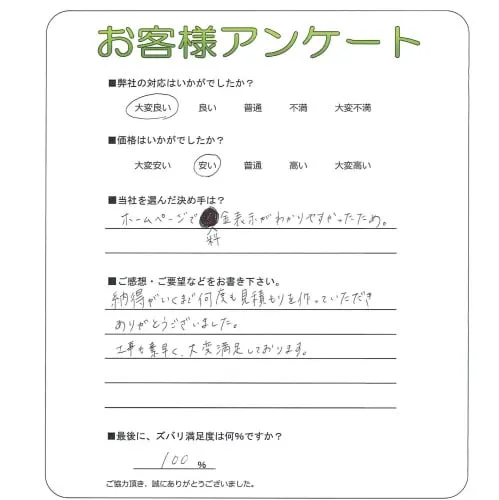 お客様アンケート
■弊社の対応はいかがでしたか？
大変良い 良い 普通 不満 大変不満
■価格はいかがでしたか？
大変安い 安い 普通 高い 大変高い
■当社を選んだ決め手は？
ホームページで料金表示がわかりやすかったため。
■ご感想・ご要望などをお書き下さい。
納得がいくまで何度も見積もりを作っていただき
ありがとうございました。
工事も素早く、大変満足しております。
■最後に、ズバリ満足度は何%ですか？
100 %
ご協力頂き、誠にありがとうございました。